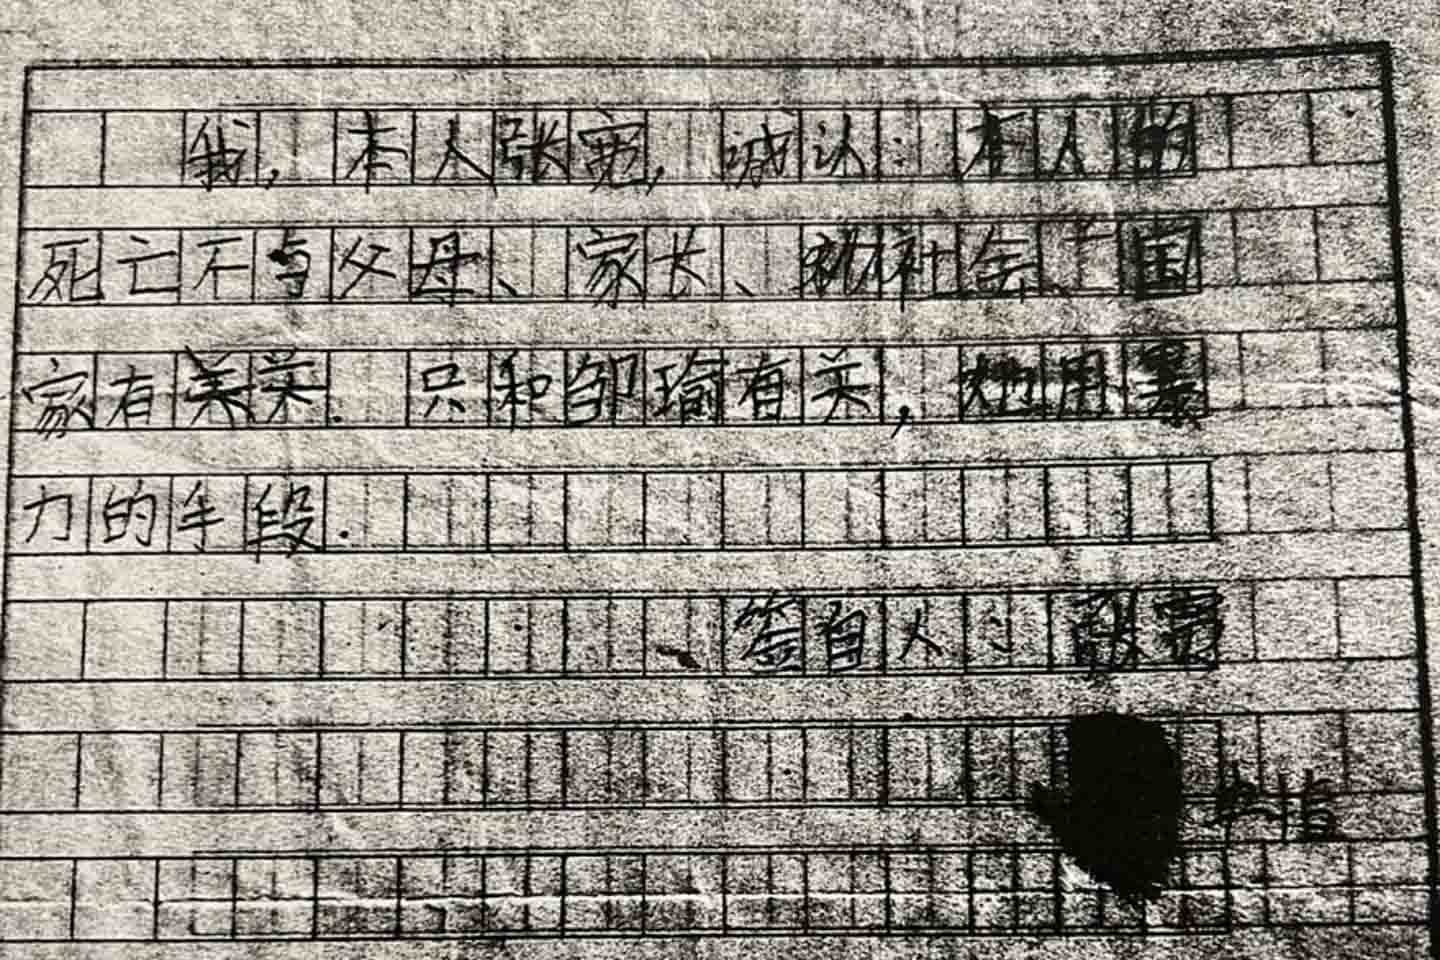 我，本人张宽，诚认：本人的
死亡不与父母、家长、和社会、国
家有关. 只和邹瑜有关，她用暴
力的手段.
签自人：张宽
指